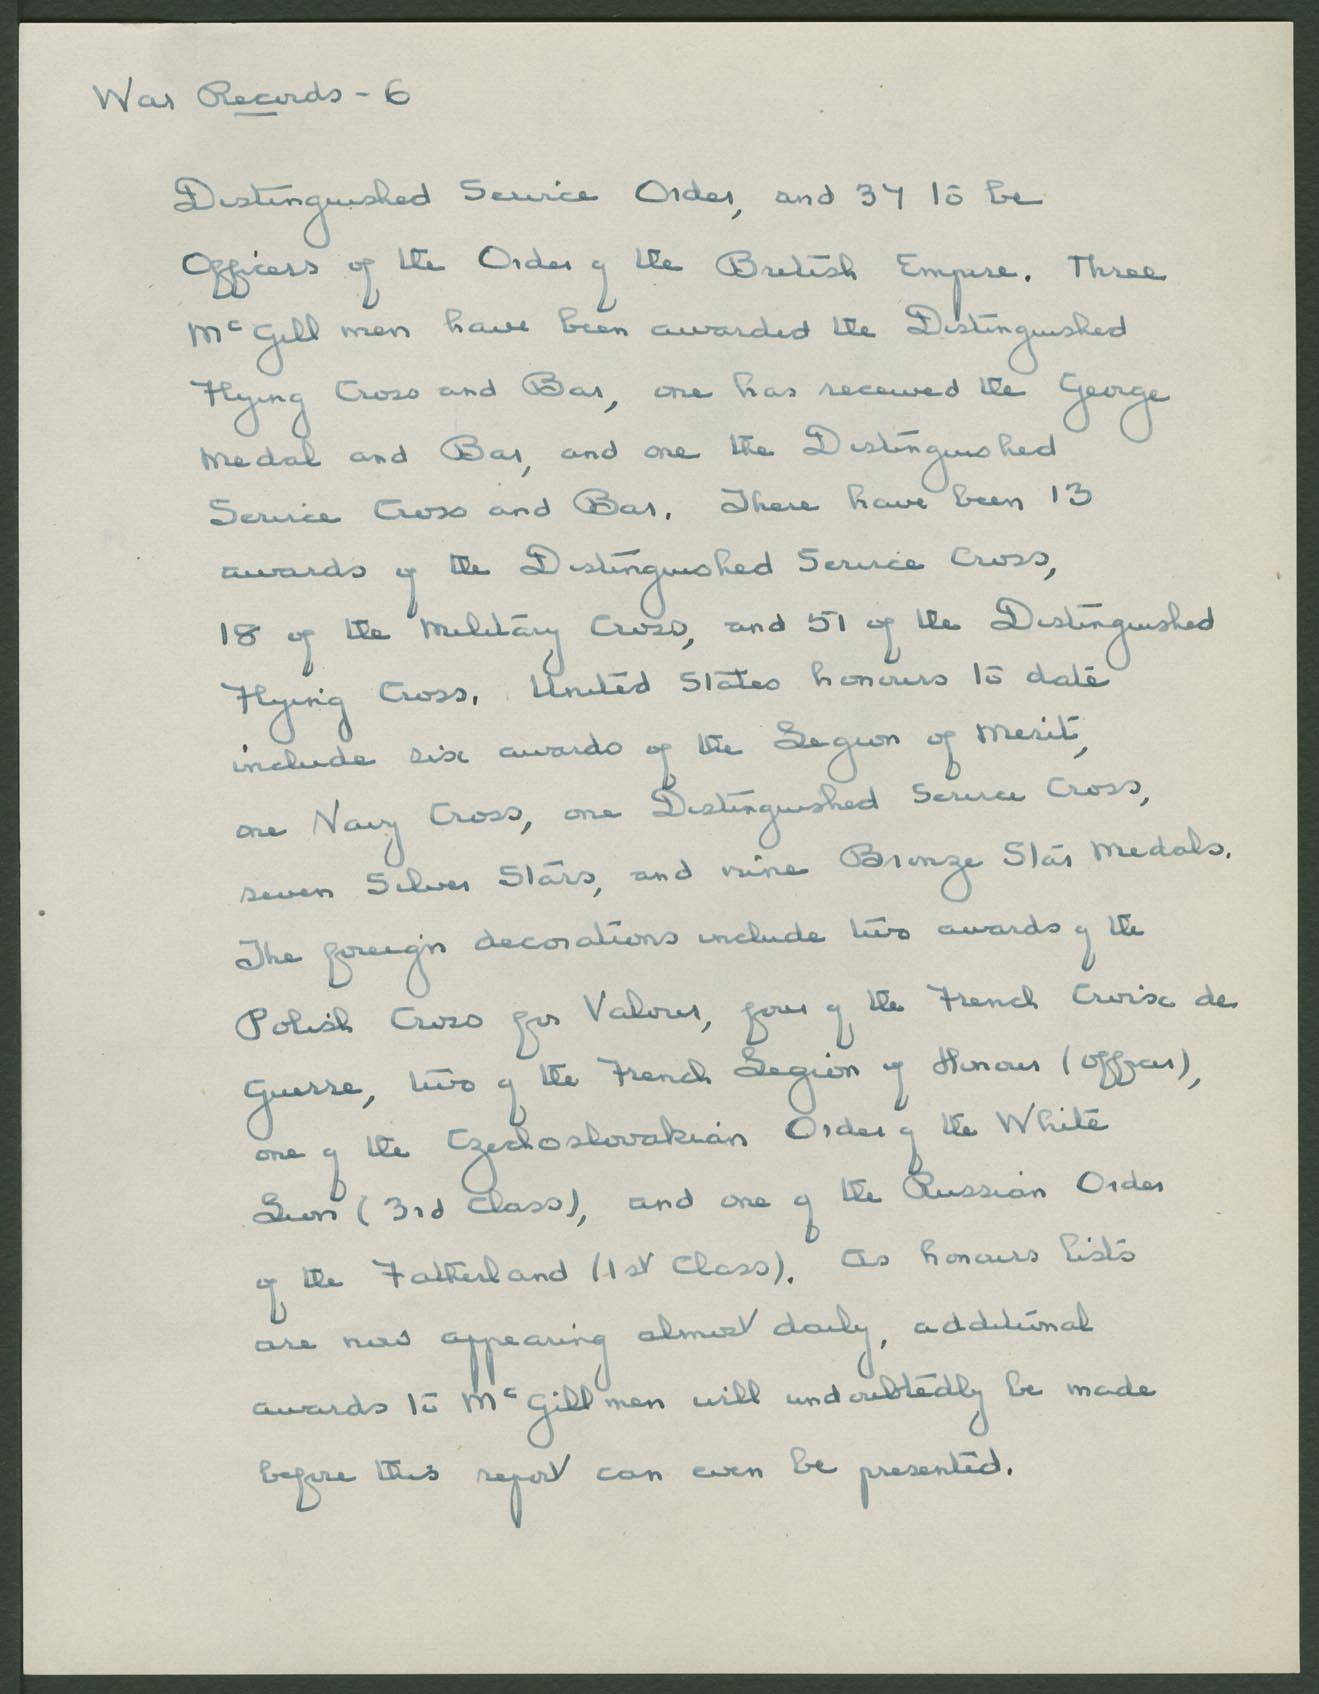 War Records - 6
Distinguished Service Order, and 37 to be
Officers of the Order of the British Empire. Three
McGill men have been awarded the Distinguished
Flying Cross and Bar, one has received the George
Medal and Bar, and one the Distinguished
Service Cross and Bar. There have been 13
awards of the Distinguished Service Cross,
18 of the Military Cross, and 51 of the Distinguished
Flying Cross. United States honours to date
include six awards of the Legion of Merit,
one Navy Cross, one Distinguished Service Cross,
seven Silver Stars, and nine Bronze Star Medals.
The foreign decorations include two awards of the
Polish Cross for Valour, four of the French Croix de
Guerre, two of the French Legion of Honour (Officer),
one of the Czechoslovakian Order of the White
Lion (3rd Class), and one of the Russian Order
of the Fatherland (1st Class). As honours lists
are now appearing almost daily, additional
awards to McGill men will undoubtedly be made
before this report can even be presented.